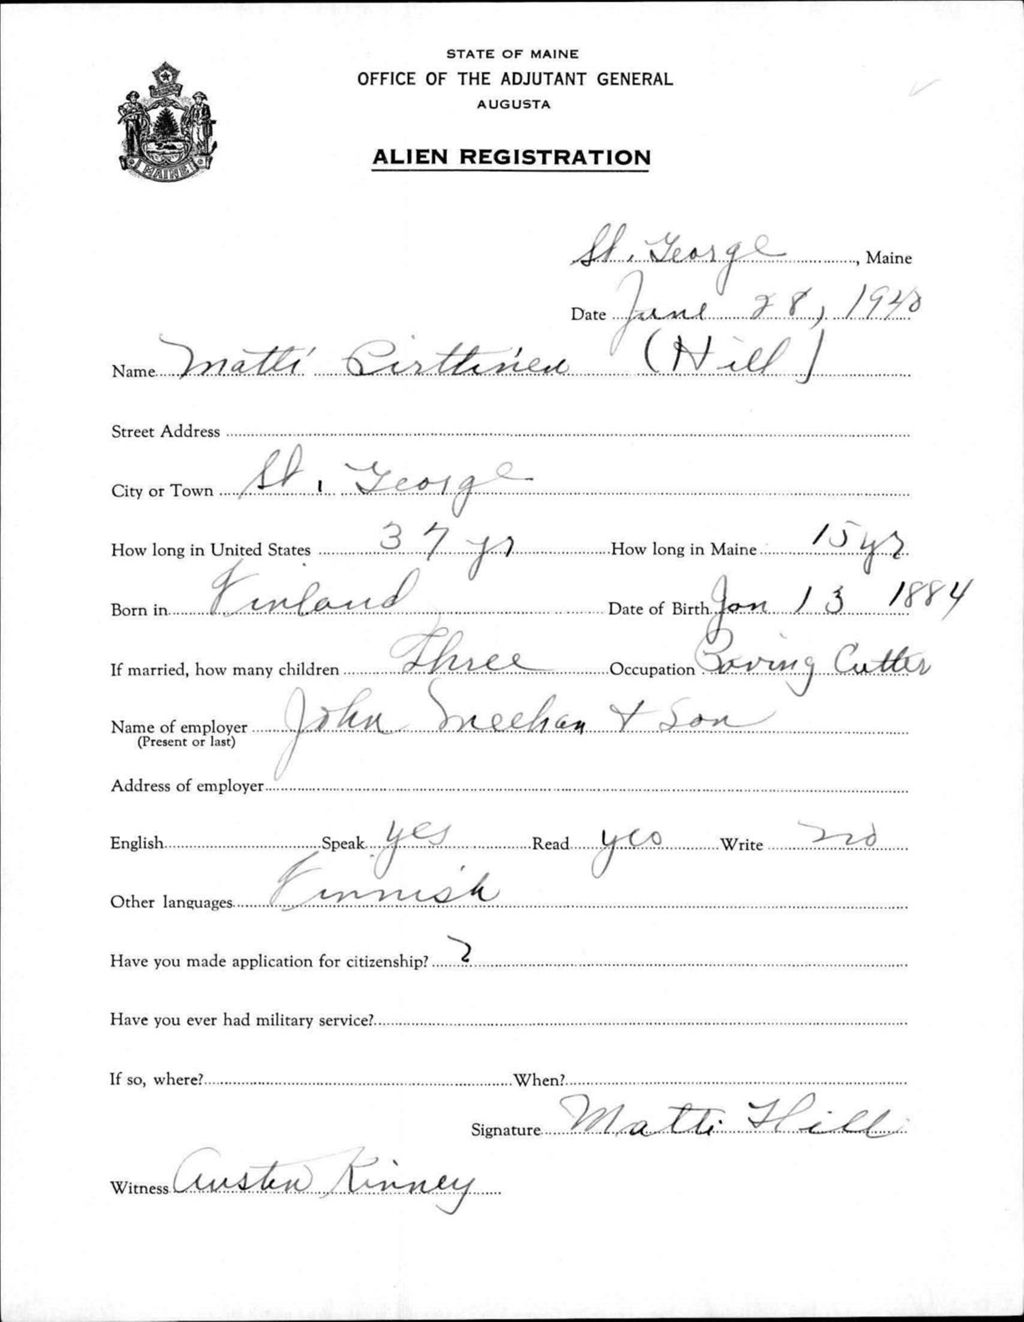 STATE OF MAINE
OFFICE OF THE ADJUTANT GENERAL
AUGUSTA
ALIEN REGISTRATION
MAINE
St. George, Maine
Date June 28, 1940
Name Matti Pirttinen (Hill)
Street Address
City or Town St. George
How long in United States 37 yr How long in Maine 15 yr
Born in Finland Date of Birth Jan 13 1884
If married, how many children Three Occupation Paving Cutter
Name of employer John Meehan & Son
(Present or last)
Address of employer
English Speak yes Read yes Write no
Other languages Finnish
Have you made application for citizenship? ?
Have you ever had military service?
If so, where? When?
Signature Matti Hill
Witness Austen Kinney